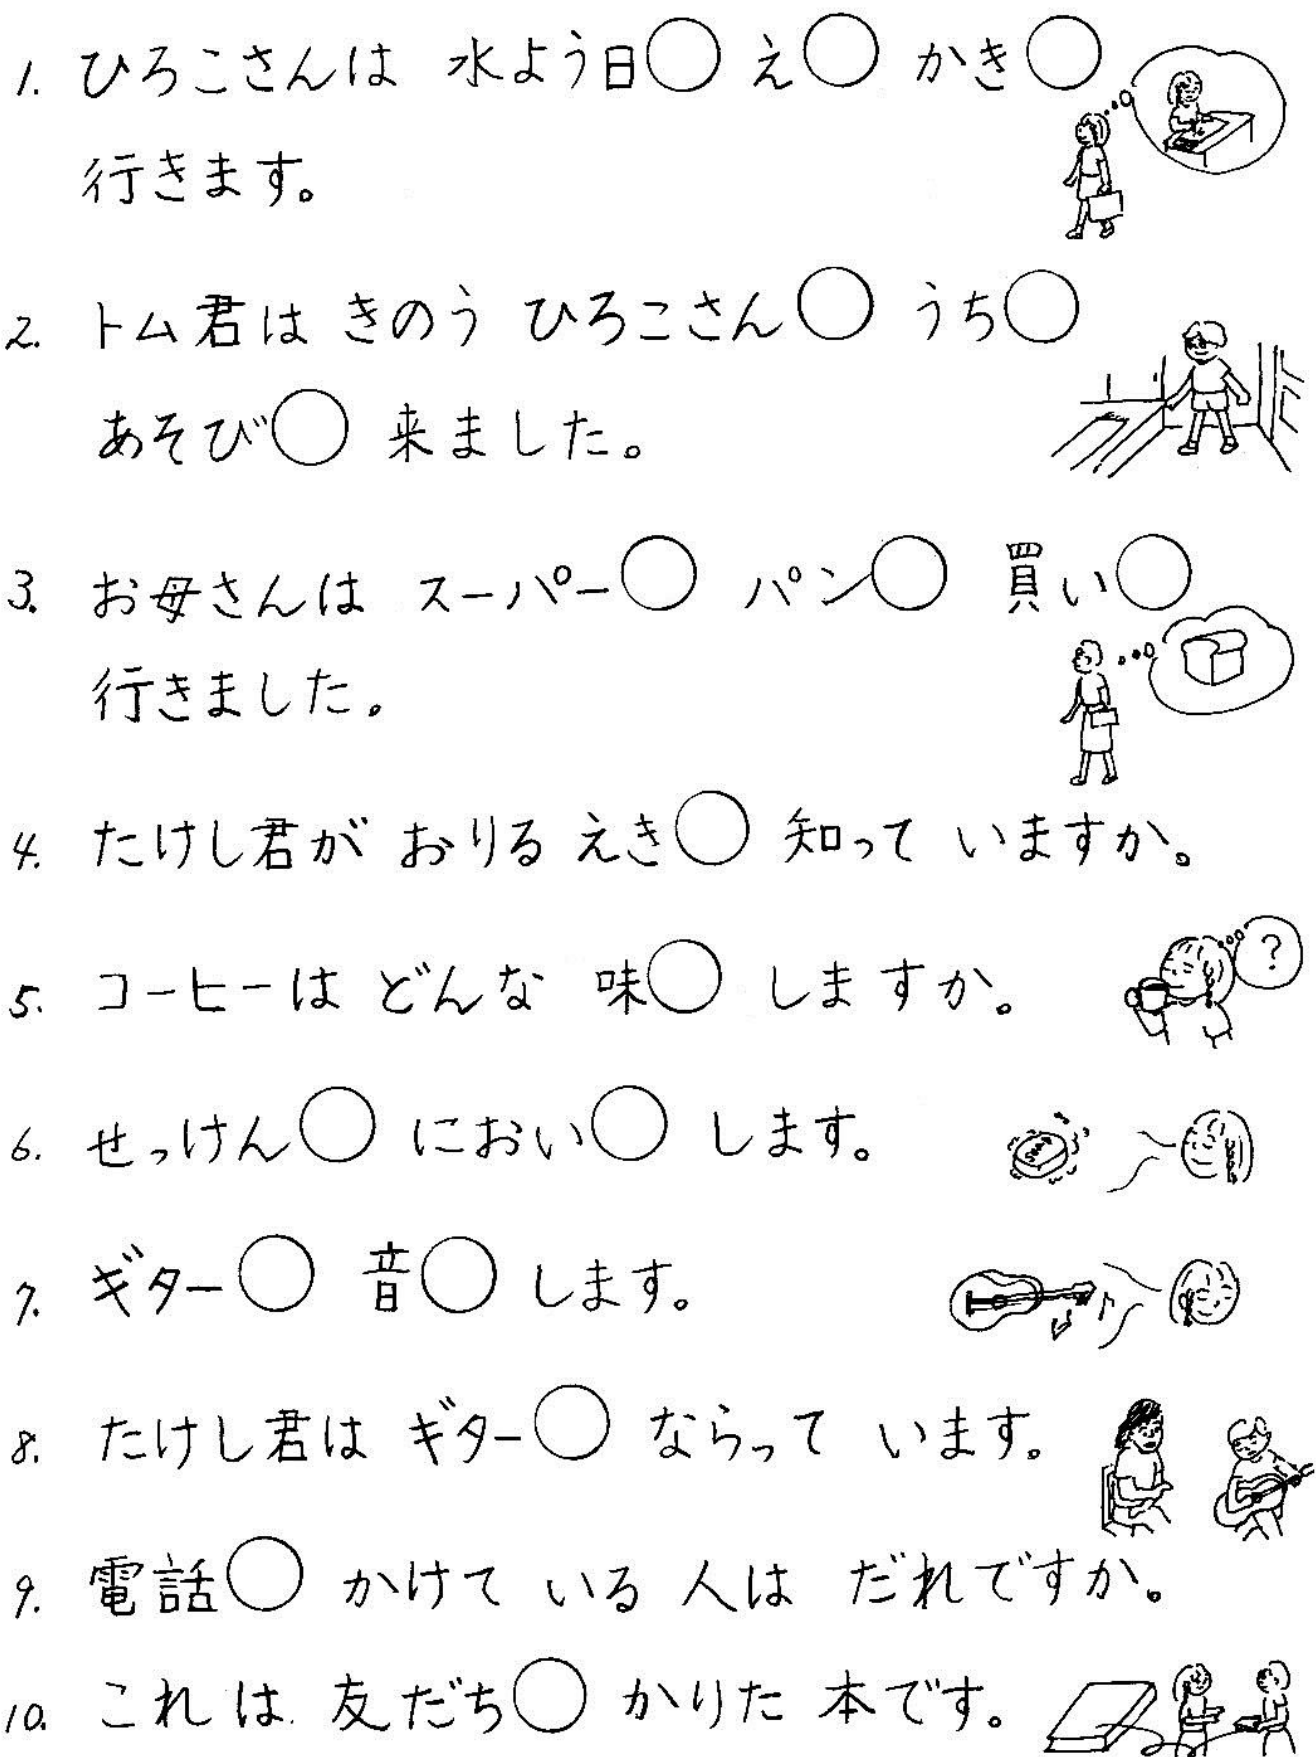 1. ひろこさんは 水よう日◯ え◯ かき◯
行きます。
2. トム君は きのう ひろこさん◯ うち◯
あそび◯ 来ました。
3. お母さんは スーパー◯ パン◯ 買い◯
行きました。
4. たけし君が おりる えき◯ 知って いますか。
5. コーヒーは どんな 味◯ しますか。
?
6. せっけん◯ におい◯ します。
SOAP
7. ギター◯ 音◯ します。
8. たけし君は ギター◯ ならって います。
9. 電話◯ かけて いる 人は だれですか。
10. これは 友だち◯ かりた 本です。